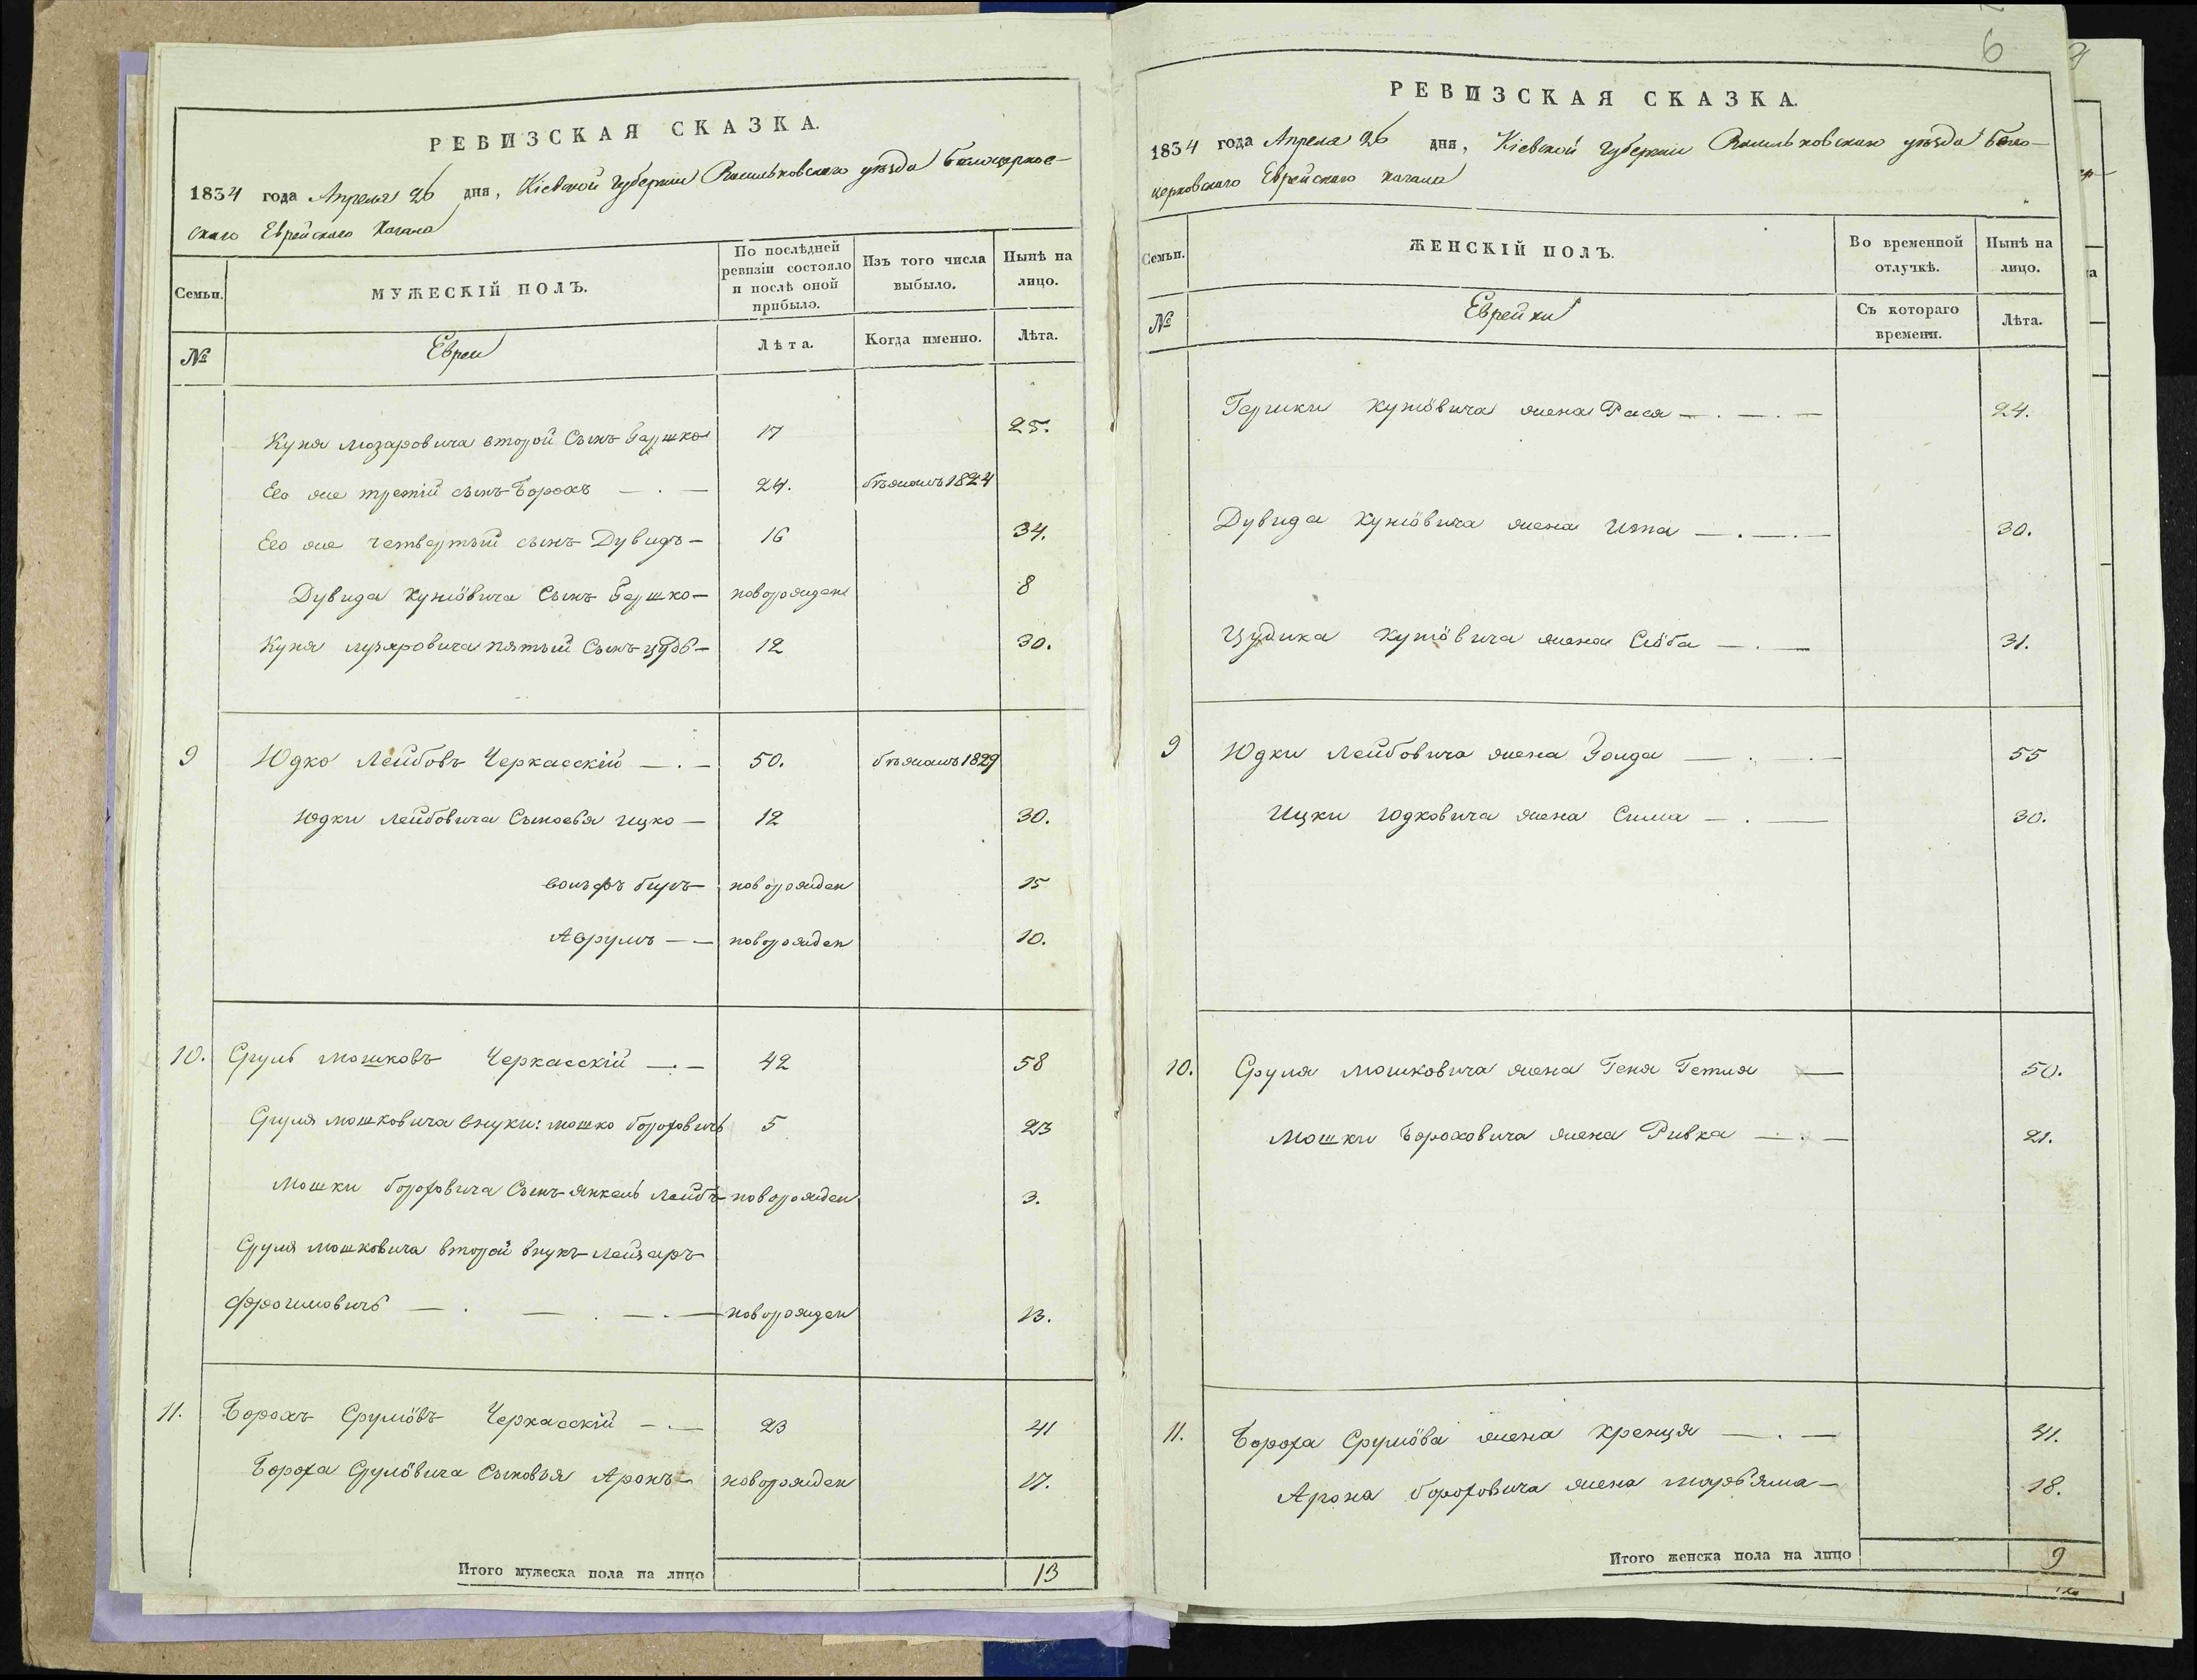 6
РЕВИЗСКАЯ СКАЗКА.
1834 года Апреля 26 дня, Кіевской Губерніи Васильковского уѣзда Белоцерков-
скаго Еврейскаго Кагала
Семьи.
МУЖЕСКІЙ ПОЛЪ.
По послѣдней ревизіи состояло и послѣ оной прибыло.
Изъ того числа выбыло.
Нынѣ на лицо.
№
Евреи
Лѣта.
Когда именно.
Лѣта.
Куня Лейзаровича второй Сынъ Гершко 17 25.
Его же третій сынъ Борохъ — . — 24. бѣжалъ 1824
Его же четвертый сынъ Дувидъ — 16 34.
Дувида Куніовича Сынъ Гершко — новорожден 8
Куня Лузаровича пятый Сынъ 12 30.
9 Юдко Лейбовъ Черкасскій — . — 50. бѣжалъ 1829
Юдки Лейбовича Сыновья Ицко — 12 30.
новорожден 15
Аврумъ — — новорожден 10.
10. Сруль Мошковъ Черкасскій — . — 42 58
Сруля Мошковича внуки: Мошко Бороховичь 5 23
Мошки Бороховича Сынъ Янкель Лейбъ новорожден 3.
Сруля Мошковича второй внукъ Лейзаръ
Фроимовичь — . — . — . — новорожден 13.
11. Борохъ Сруліовъ Черкасскій — . — 23 41
Бороха Сруліовича Сыновья Аронъ — новорожден 17.
Итого мужеска пола на лицо 13
РЕВИЗСКАЯ СКАЗКА.
1834 года Апреля 26 дня, Кіевской Губерніи Васильковскаго уѣзда Бело-
церковскаго Еврейскаго Кагала
Семьи.
ЖЕНСКІЙ ПОЛЪ.
Во временной отлучкѣ.
Нынѣ на лицо.
№
Еврейки
Съ котораго времени.
Лѣта.
Гершки Куніовича жена Рася — . — . — 24.
Дувида Куніовича жена Ита — . — . — 30.
Цудика Куніовича жена Сіоба — . — 31.
9 Юдки Лейбовича жена Зонда — . — . — 55
Ицки Юдковича жена Сима — . — 30.
10. Сруля Мошковича жена Геня Гетля — 50.
Мошки Бороховича жена Ривка — . — 21.
11. Бороха Сруліова жена Кренця — . — 41.
Арона Бороховича жена Марьяма — 18.
Итого женска пола на лицо 9